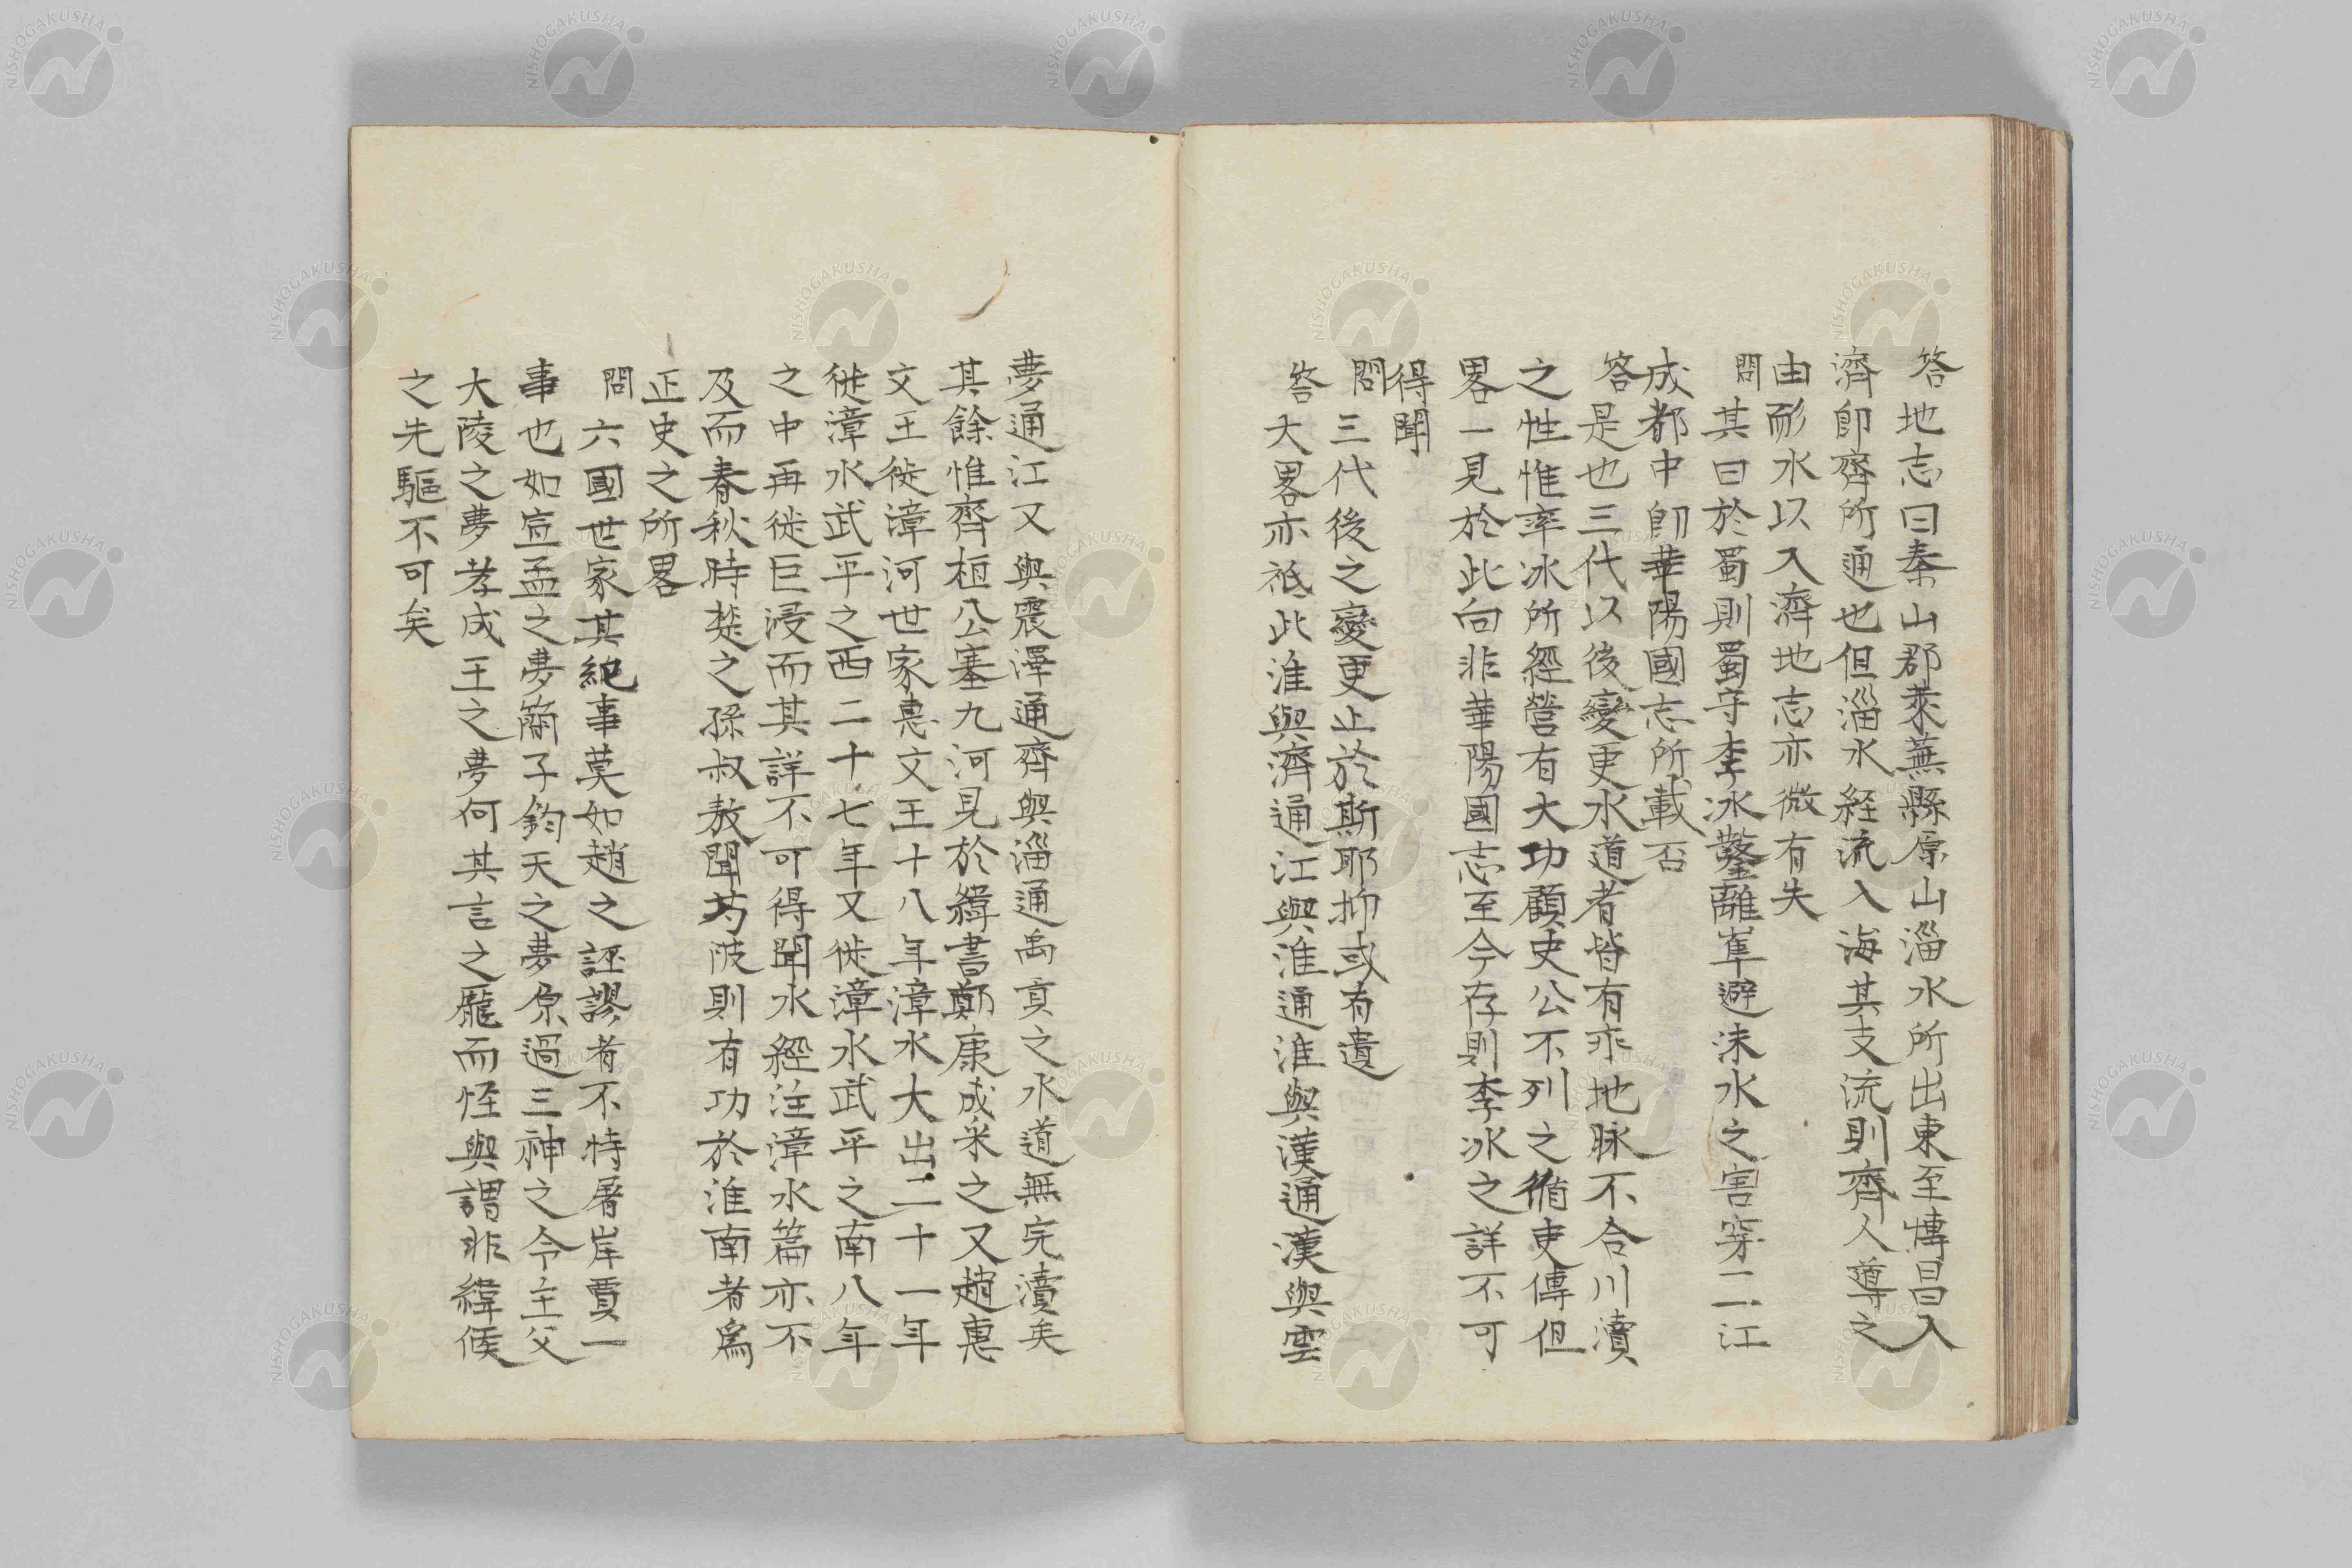 答地志曰泰山郡萊蕪縣原山淄水所出東至博昌入
濟卽齊所通也但淄水経流入海其支流則齊人導之
由耏水以入濟地志亦微有失
問其曰於蜀則蜀守李冰鑿離隼避沬水之害穿二江
成都中卽華陽國志所載否
答是也三代以後變更水道者皆有乖地脉不合川瀆
之性惟李冰所經營有大功顧史公不列之循吏傳但
畧一見於此向非華陽國志至今存則李冰之詳不可
得聞
問三代後之變更止於斯耶抑或有遺
答大畧亦祇此淮與濟通江與淮通淮與漢通漢與雲
夢通江又與震澤通齊與淄通禹貢之水道無完瀆矣
其餘惟齊桓公塞九河見於緯書鄭康成釆之又趙惠
文王徙漳河世家惠文王十八年漳水大出二十一年
徙漳水武平之西二十七年又徙漳水武平之南八年
之中再徙巨浸而其詳不可得聞水經注漳水篇亦不
及而春秋時楚之孫叔敖聞芍陂則有功於淮南者爲
正史之所畧
問六國世家其紀事莫如趙之誣謬者不特屠岸賈一
事也如宣孟之夢簡子鈞天之夢原過三神之令主父
大陵之夢孝成王之夢何其言之龐而恠與謂非緯候
之先驅不可矣
NISHOGAKUSHA